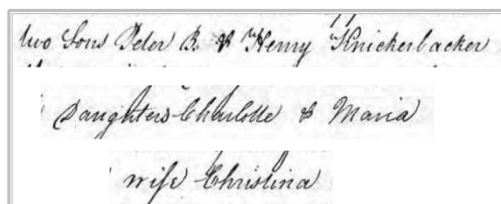 two Sons Peter B. & Henry Knickerbacker
Daughters Charlotte & Maria
wife Christina